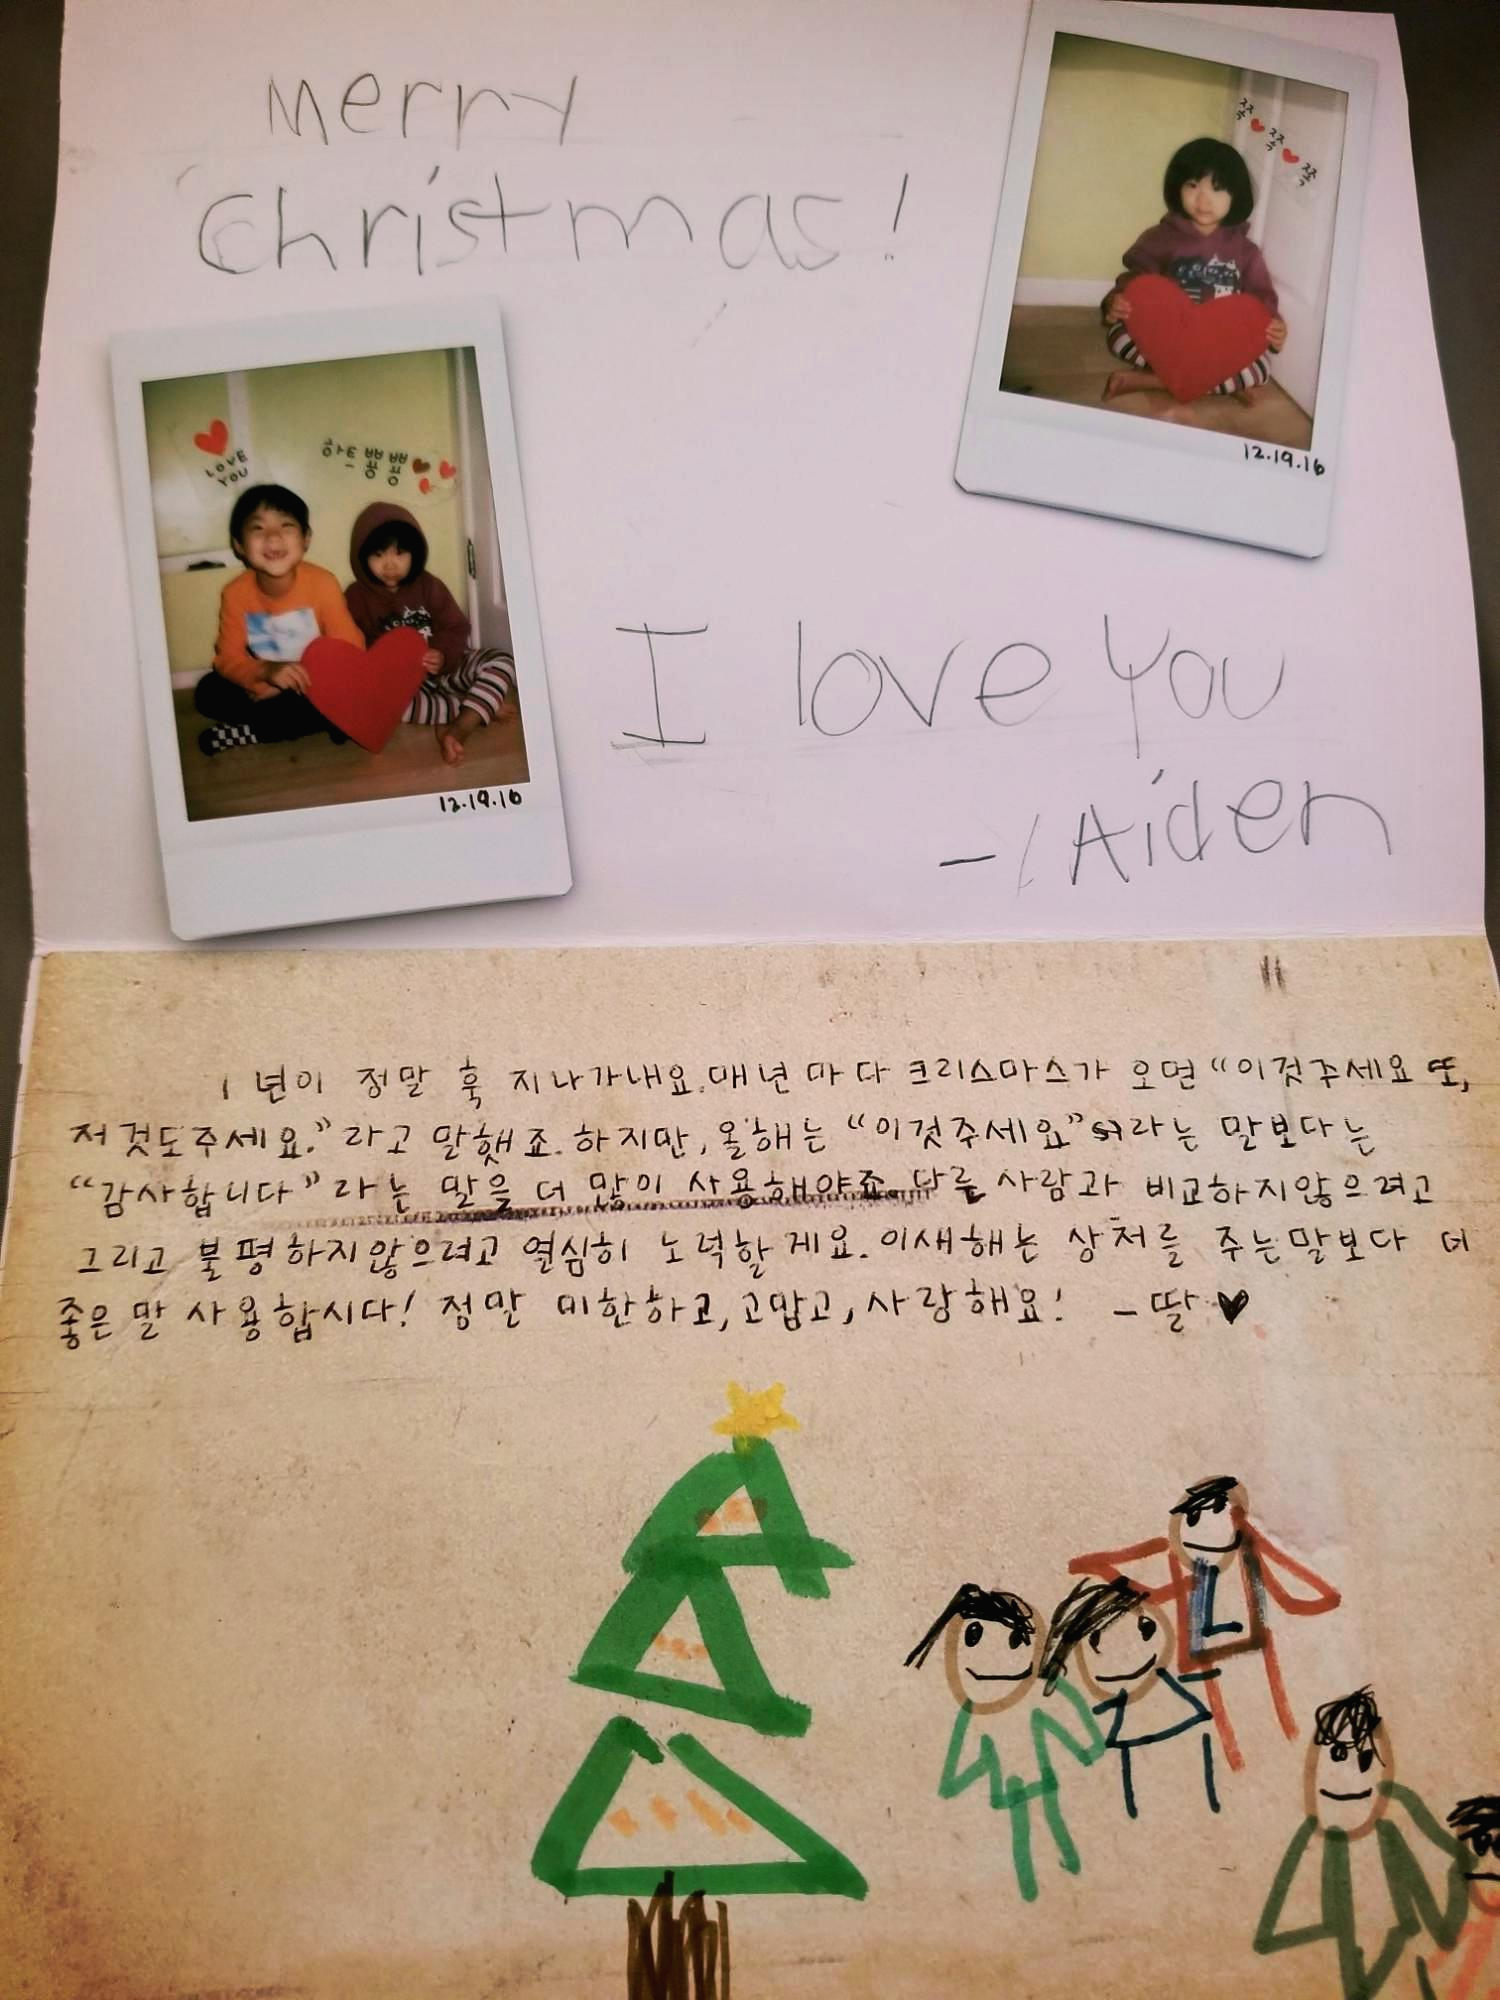 Merry
Christmas!
쪽♥쪽♥쪽
12.19.16
LOVE
YOU
하트뿅뿅
12.19.16
I love you
- Aiden
1년이 정말 훅 지나가내요. 매년 마다 크리스마스가 오면 “이것주세요 또,
저것도주세요.” 라고 말했죠. 하지만, 올해는 “이것주세요” 라는 말보다는
“감사합니다” 라는 말을 더 많이 사용해야죠. 다른 사람과 비교하지않으려고
그리고 불평하지않으려고 열심히 노력할게요. 이새해는 상처를 주는말보다 더
좋은 말 사용합시다! 정말 미한하고, 고맙고, 사랑해요! - 딸 ♥